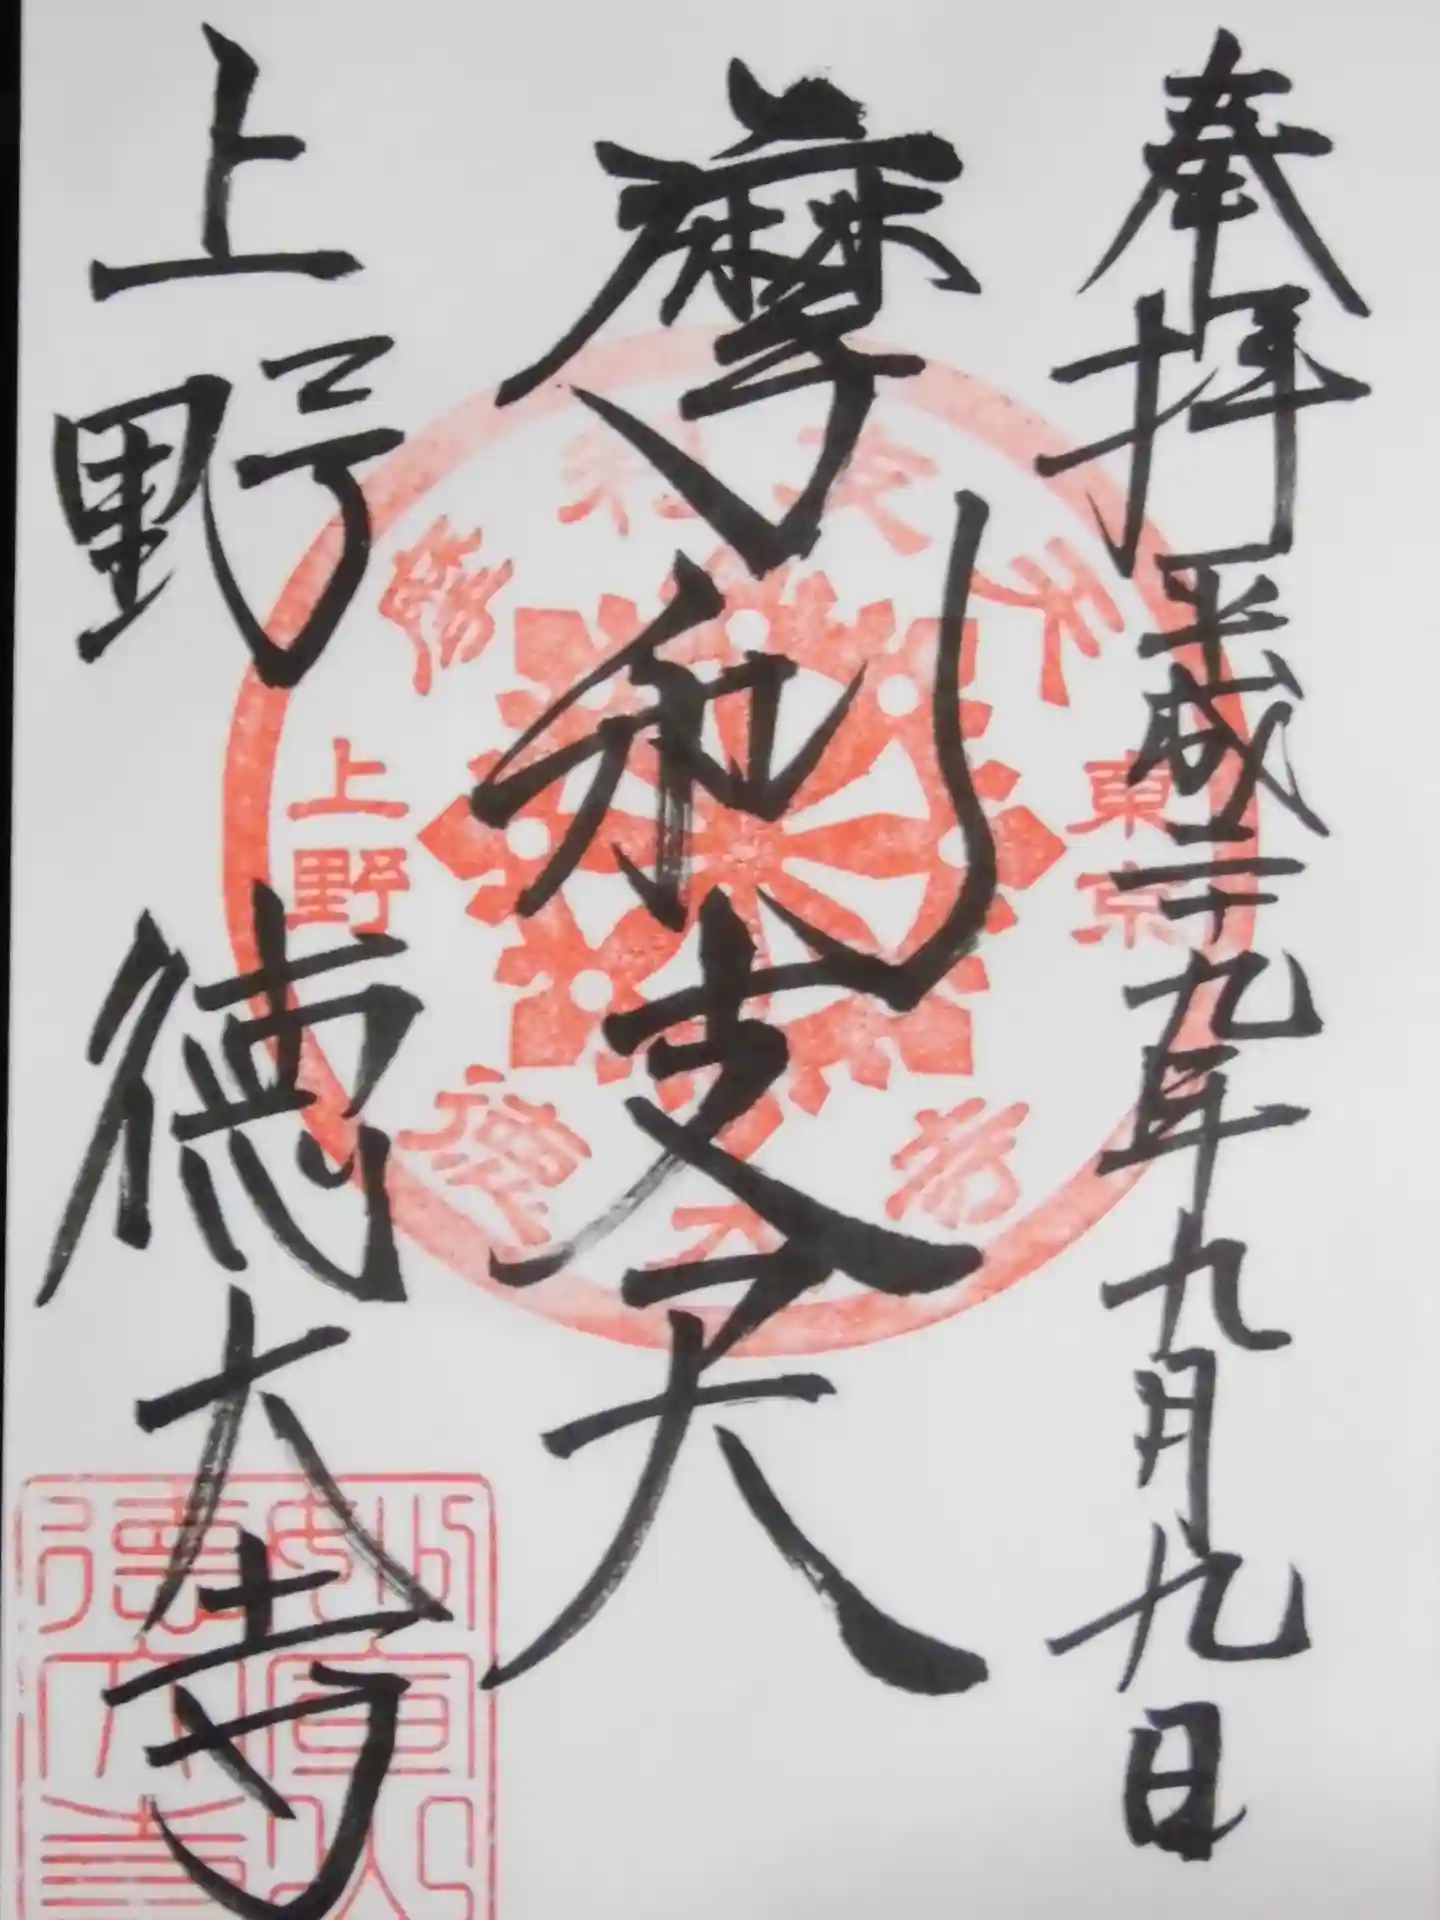 奉拝 平成二十九年九月九日
摩利支天
上野 徳大寺
摩利支天
東京
上野
徳大寺
妙宣山
徳大寺